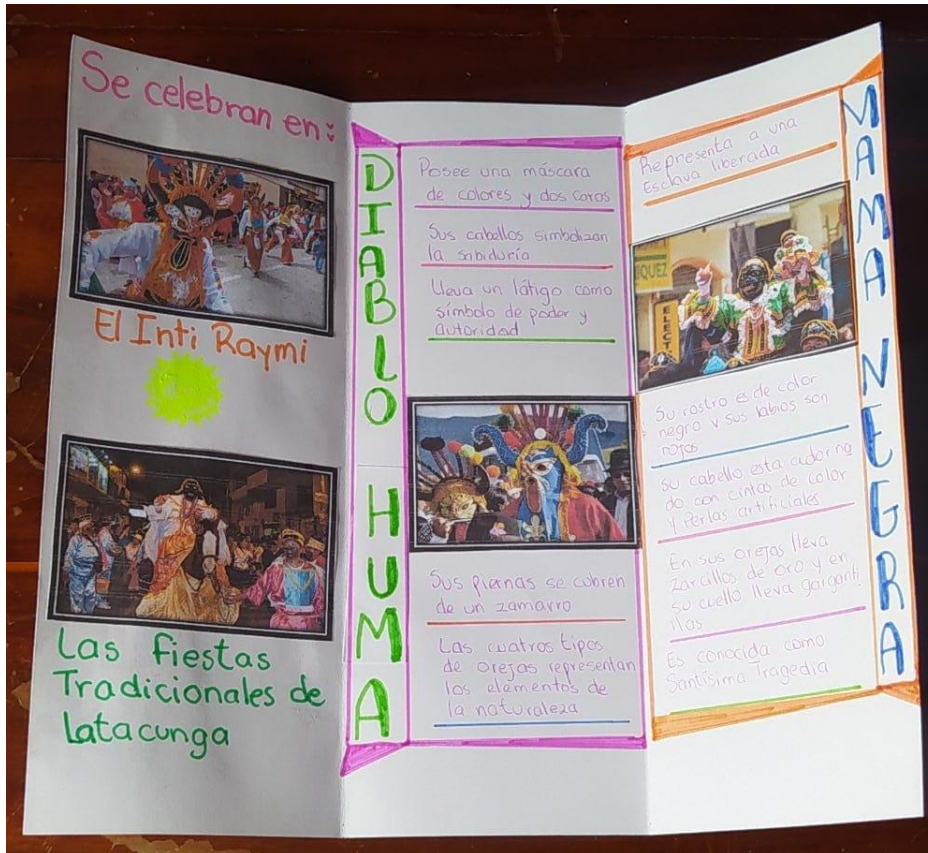 Se celebran en:
El Inti Raymi
Las fiestas
Tradicionales de
Latacunga
DIABLO HUMA
Posee una máscara
de colores y dos caras
Sus cabellos simbolizan
la sabiduría
Lleva un látigo como
símbolo de poder y
autoridad
Sus piernas se cubren
de un zamarro
Las cuatros tipos
de orejas representan
los elementos de
la naturaleza
MAMA NEGRA
Representa a una
Esclava liberada
IQUEZ
ELECT
Su rostro es de color
negro y sus labios son
rojos
Su cabello esta adorna
do con cintas de color
y Perlas artificiales
En sus orejas lleva
Zarcillos de oro y en
su cuello lleva garganti
llas
Es conocida como
Santísima Tragedia